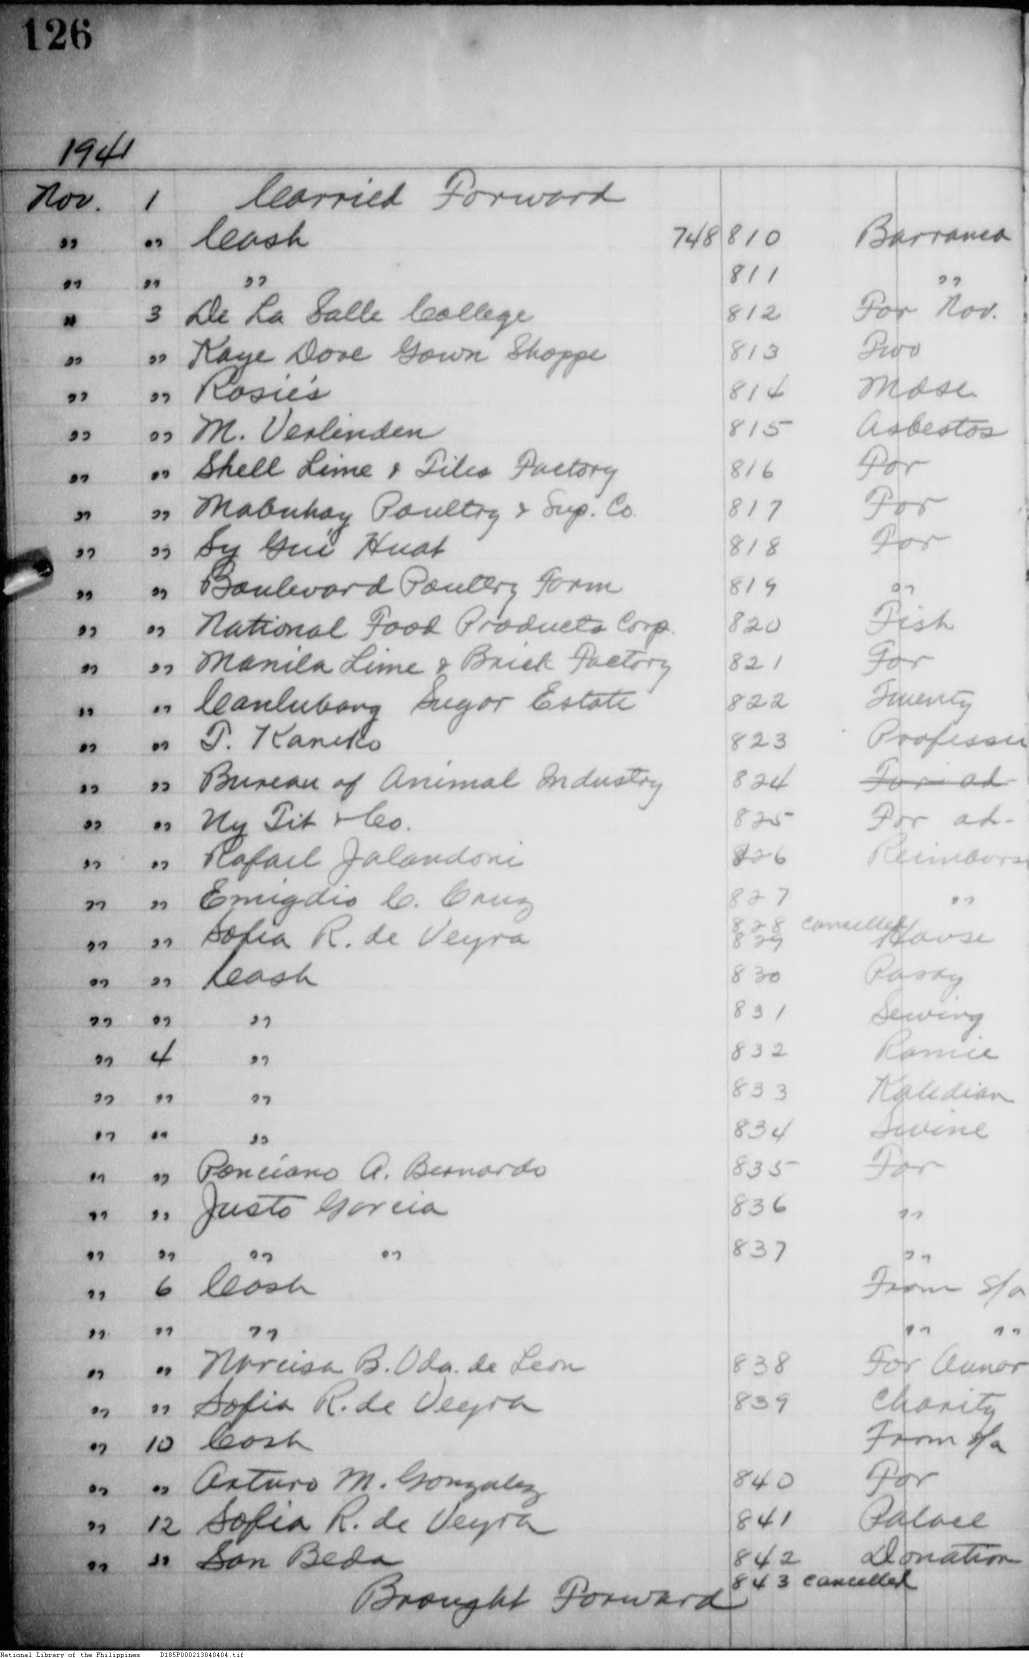 126
1941
Nov. 1 Carried Forward
" " Cash 748 810 Barranca
" " " 811 "
" 3 De La Salle College 812 For Nov.
" " Kaye Dove Gown Shoppe 813 Two
" " Rosie's 814 Mdse.
" " M. Verlinden 815 Asbestos
" " Shell Lime & Tiles Factory 816 For
" " Mabuhay Poultry & Sup. Co. 817 For
" " Sy Gui Huat 818 For
" " Boulevard Poultry Farm 819 "
" " National Food Products Corp. 820 Fish
" " Manila Lime & Brick Factory 821 For
" " Canlubang Sugar Estate 822 Twenty
" " T. Kaneko 823 Professi
" " Bureau of Animal Industry 824 For ad-
" " Uy Tit & Co. 825 For ad-
" " Rafael Jalandoni 826 Reimburs
" " Emigdio C. Cruz 827 "
828 cancelled
" " Sofia R. de Veyra 829 House
" " Cash 830 Pasay
" " " 831 Sewing
" 4 " 832 Ramie
" " " 833
" " " 834 Swine
" " Ponciano A. Bernardo 835 For
" " Justo Garcia 836 "
" " " " 837 "
" 6 Cash From s/a
" " " " "
" " Narcisa B. Vda. de Leon 838 For
" " Sofia R. de Veyra 839 Charity
" 10 Cash From s/a
" " Arturo M. Gonzalez 840 For
" 12 Sofia R. de Veyra 841 Palace
" " San Beda 842 Donation
843 cancelled
Brought Forward
National Library of the Philippines D185P000213040404.tif